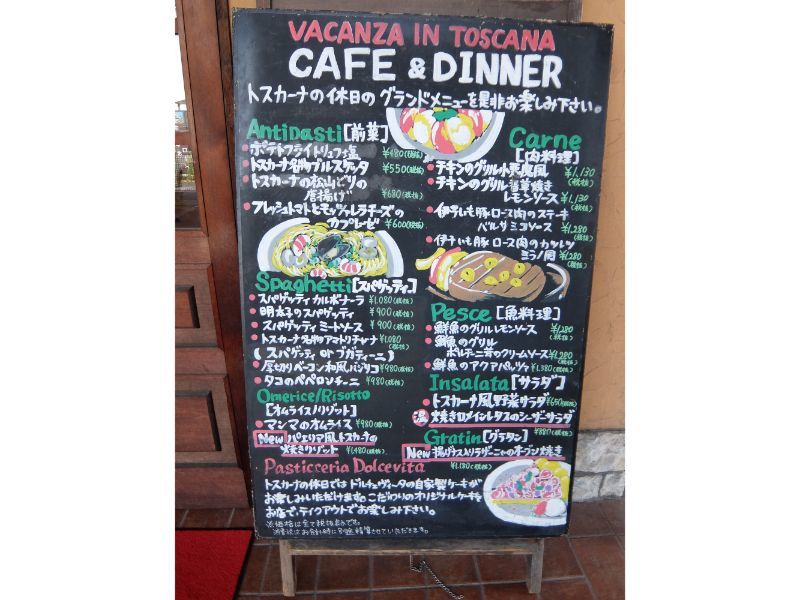 VACANZA IN TOSCANA
CAFE & DINNER
トスカーナの休日の グランドメニューを是非お楽しみ下さい。
Antipasti [前菜]
ポテトフライトリュフ塩 ¥480(税抜)
トスカーナ名物ブルスケッタ ¥550(税抜)
トスカーナの松山どりの
唐揚げ ¥680(税抜)
フレッシュトマトとモッツァレラチーズの
カプレーゼ ¥600(税抜)
Spaghetti [スパゲッティ]
スパゲッティ カルボナーラ ¥1,080(税抜)
明太子のスパゲッティ ¥900(税抜)
スパゲッティ ミートソース ¥900(税抜)
トスカーナ名物アマトリチャーナ ¥1,080
(税抜)
(スパゲッティ or ブガティーニ)
厚切りベーコン和風バジリコ ¥980(税抜)
タコのペペロンチーニ ¥980(税抜)
Omerice/Risotto
[オムライス/リゾット]
マンマのオムライス ¥980(税抜)
New パエリア風トスカーナの
焼きリゾット ¥1,480(税抜)
Carne
[肉料理]
チキンのグリル小悪魔風 ¥1,130
(税抜)
チキンのグリル香草焼き
レモンソース ¥1,130
(税抜)
伊予いも豚ロース肉のステーキ
バルサミコソース ¥1,280
(税抜)
伊予いも豚 ロース肉のカツレツ
ミラノ風 ¥1,280
(税抜)
Pesce [魚料理]
鮮魚のグリルレモンソース ¥1,280
(税抜)
鮮魚のグリル
ポルチーニ茸のクリームソース ¥1,280
(税抜)
鮮魚のアクアパッツァ ¥1,380(税抜)
Insalata [サラダ]
トスカーナ風野菜サラダ ¥650(税抜)
温 焼きロメインレタスのシーザーサラダ
¥880(税抜)
Gratin [グラタン]
New 揚げナス入りラザーニャのオーブン焼き
¥1,180(税抜)
Pasticceria Dolcevita
トスカーナの休日ではドルチェヴィータの自家製ケーキが
お楽しみいただけます。こだわりのオリジナルケーキを
お店で、テイクアウトでお楽しみ下さい。
※価格は全て税抜きです。
消費税はお会計時に別途精算させていただきます。